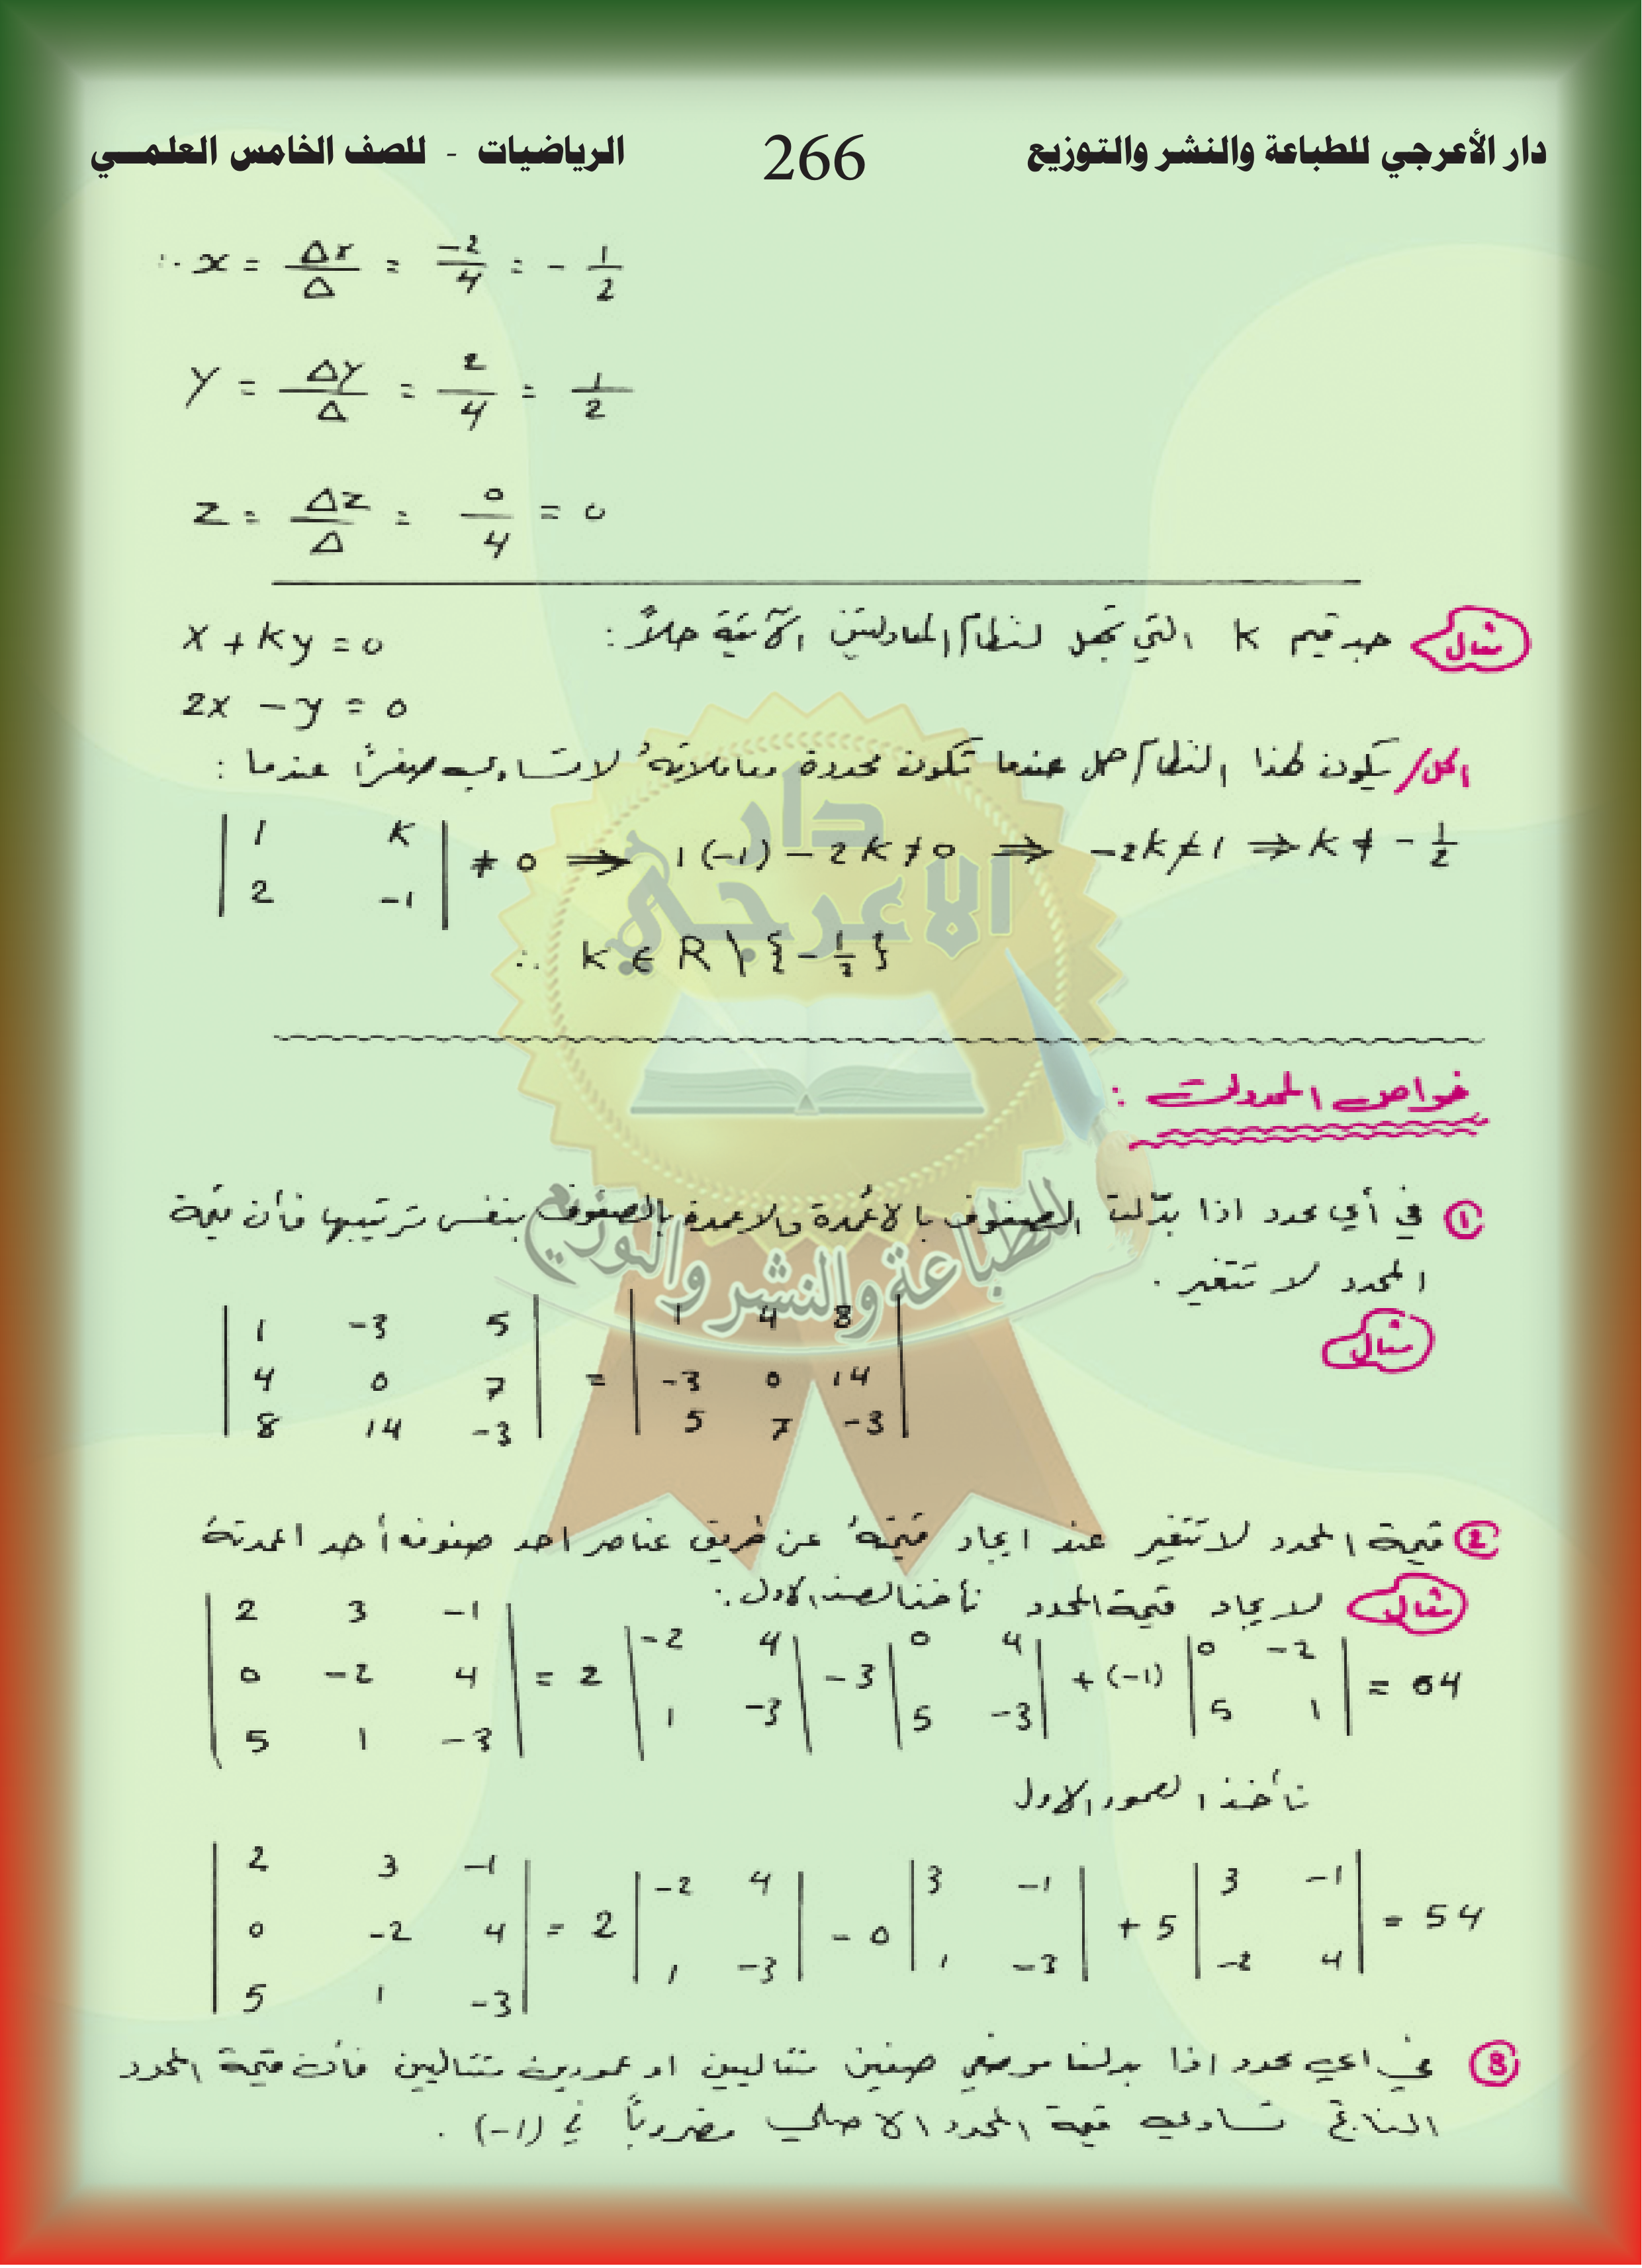 دار الأعرجي للطباعة والنشر والتوزيع 266 الرياضيات - للصف الخامس العلمي
∴ x = Δx/Δ = -2/4 = - 1/2
y = Δy/Δ = 2/4 = 1/2
z = Δz/Δ = 0/4 = 0
مثال جد قيم K التي تجعل لنظام المعادلتين الآتية حلاً :
x + ky = 0
2x - y = 0
الحل/ يكون لهذا النظام حل عندما تكون محددة معاملاته لا تساوي صفراً عندما :
| 1 K | ≠ 0 ⇒ 1(-1) - 2K ≠ 0 ⇒ -2K ≠ 1 ⇒ K ≠ - 1/2
| 2 -1 |
∴ K ∈ R \ {- 1/2}
دار
الاعرجي
للطباعة والنشر والتوزيع
خواص المحددات :
① في أي محدد اذا بدّلت الصفوف بالأعمدة والاعمدة بالصفوف بنفس ترتيبها فأن قيمة
المحدد لا تتغير .
مثال
| 1 -3 5 | = | 1 4 8 |
| 4 0 7 | | -3 0 14 |
| 8 14 -3 | | 5 7 -3 |
② قيمة المحدد لا تتغير عند ايجاد قيمته عن طريق عناصر احد صفوفه أحد اعمدته
مثال لايجاد قيمة المحدد نأخذ الصف الاول :
| 2 3 -1 | = 2 | -2 4 | - 3 | 0 4 | + (-1) | 0 -2 | = 54
| 0 -2 4 | | 1 -3 | | 5 -3 | | 5 1 |
| 5 1 -3 |
نأخذ العمود الاول
| 2 3 -1 | = 2 | -2 4 | - 0 | 3 -1 | + 5 | 3 -1 | = 54
| 0 -2 4 | | 1 -3 | | 1 -3 | | -2 4 |
| 5 1 -3 |
③ في اي محدد اذا بدلنا موضعي صفين متتاليين او عمودين متتاليين فأن قيمة المحدد
الناتج تساوي قيمة المحدد الاصلي مضروباً في (-1) .